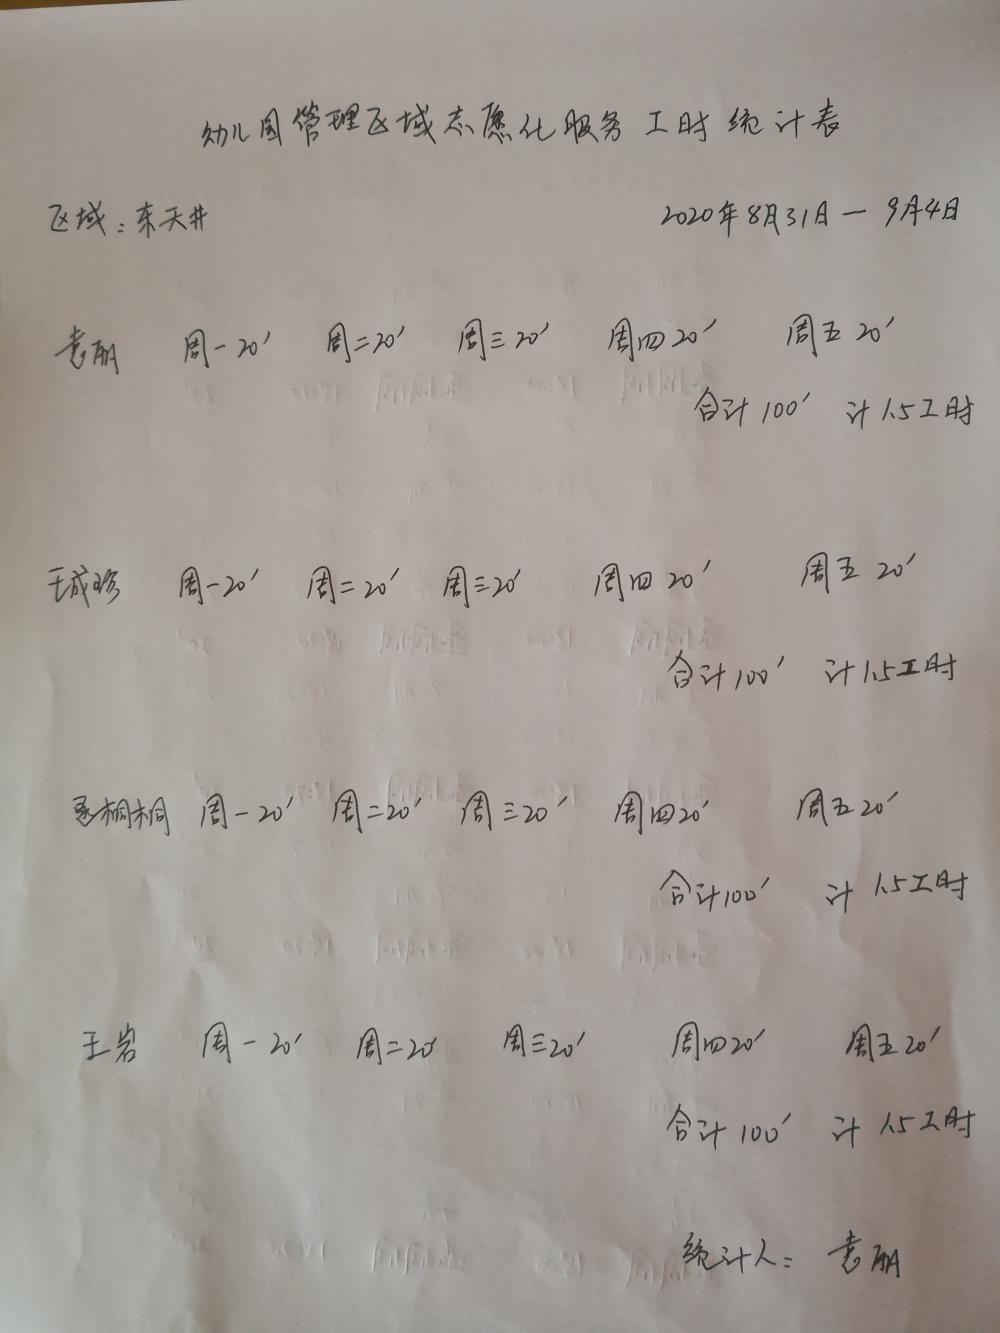 幼儿园管理区域志愿化服务工时统计表
区域：东天井 2020年8月31日一9月4日
袁丽 周一20′ 周二20′ 周三20′ 周四20′ 周五20′
合计100′ 计1.5工时
王成珍 周一20′ 周二20′ 周三20′ 周四20′ 周五20′
合计100′ 计1.5工时
桐桐 周一20′ 周二20′ 周三20′ 周四20′ 周五20′
合计100′ 计1.5工时
王岩 周一20′ 周二20′ 周三20′ 周四20′ 周五20′
合计100′ 计1.5工时
统计人：袁丽